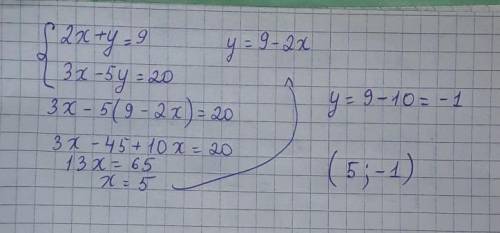 2x+y=9
y=9-2x
3x-5y=20
3x-5(9-2x)=20
3x-45+10x=20
13x=65
x=5
y=9-10=-1
(5;-1)